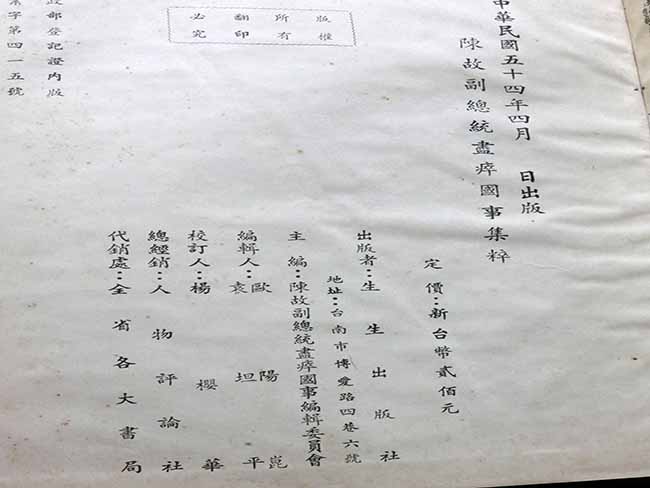 中華民國五十四年四月 日出版
陳故副總統盡瘁國事集粹
定價：新台幣貳佰元
出版者：生生出版社
地址：台南市博愛路四巷六號
主編：陳故副總統盡瘁國事編輯委員會
編輯人：歐陽崑
袁坦平
校訂人：楊櫻華
總經銷：人物評論社
代銷處：全省各大書局
版權所有
翻印必究
政部登記證內版
字第四一五號